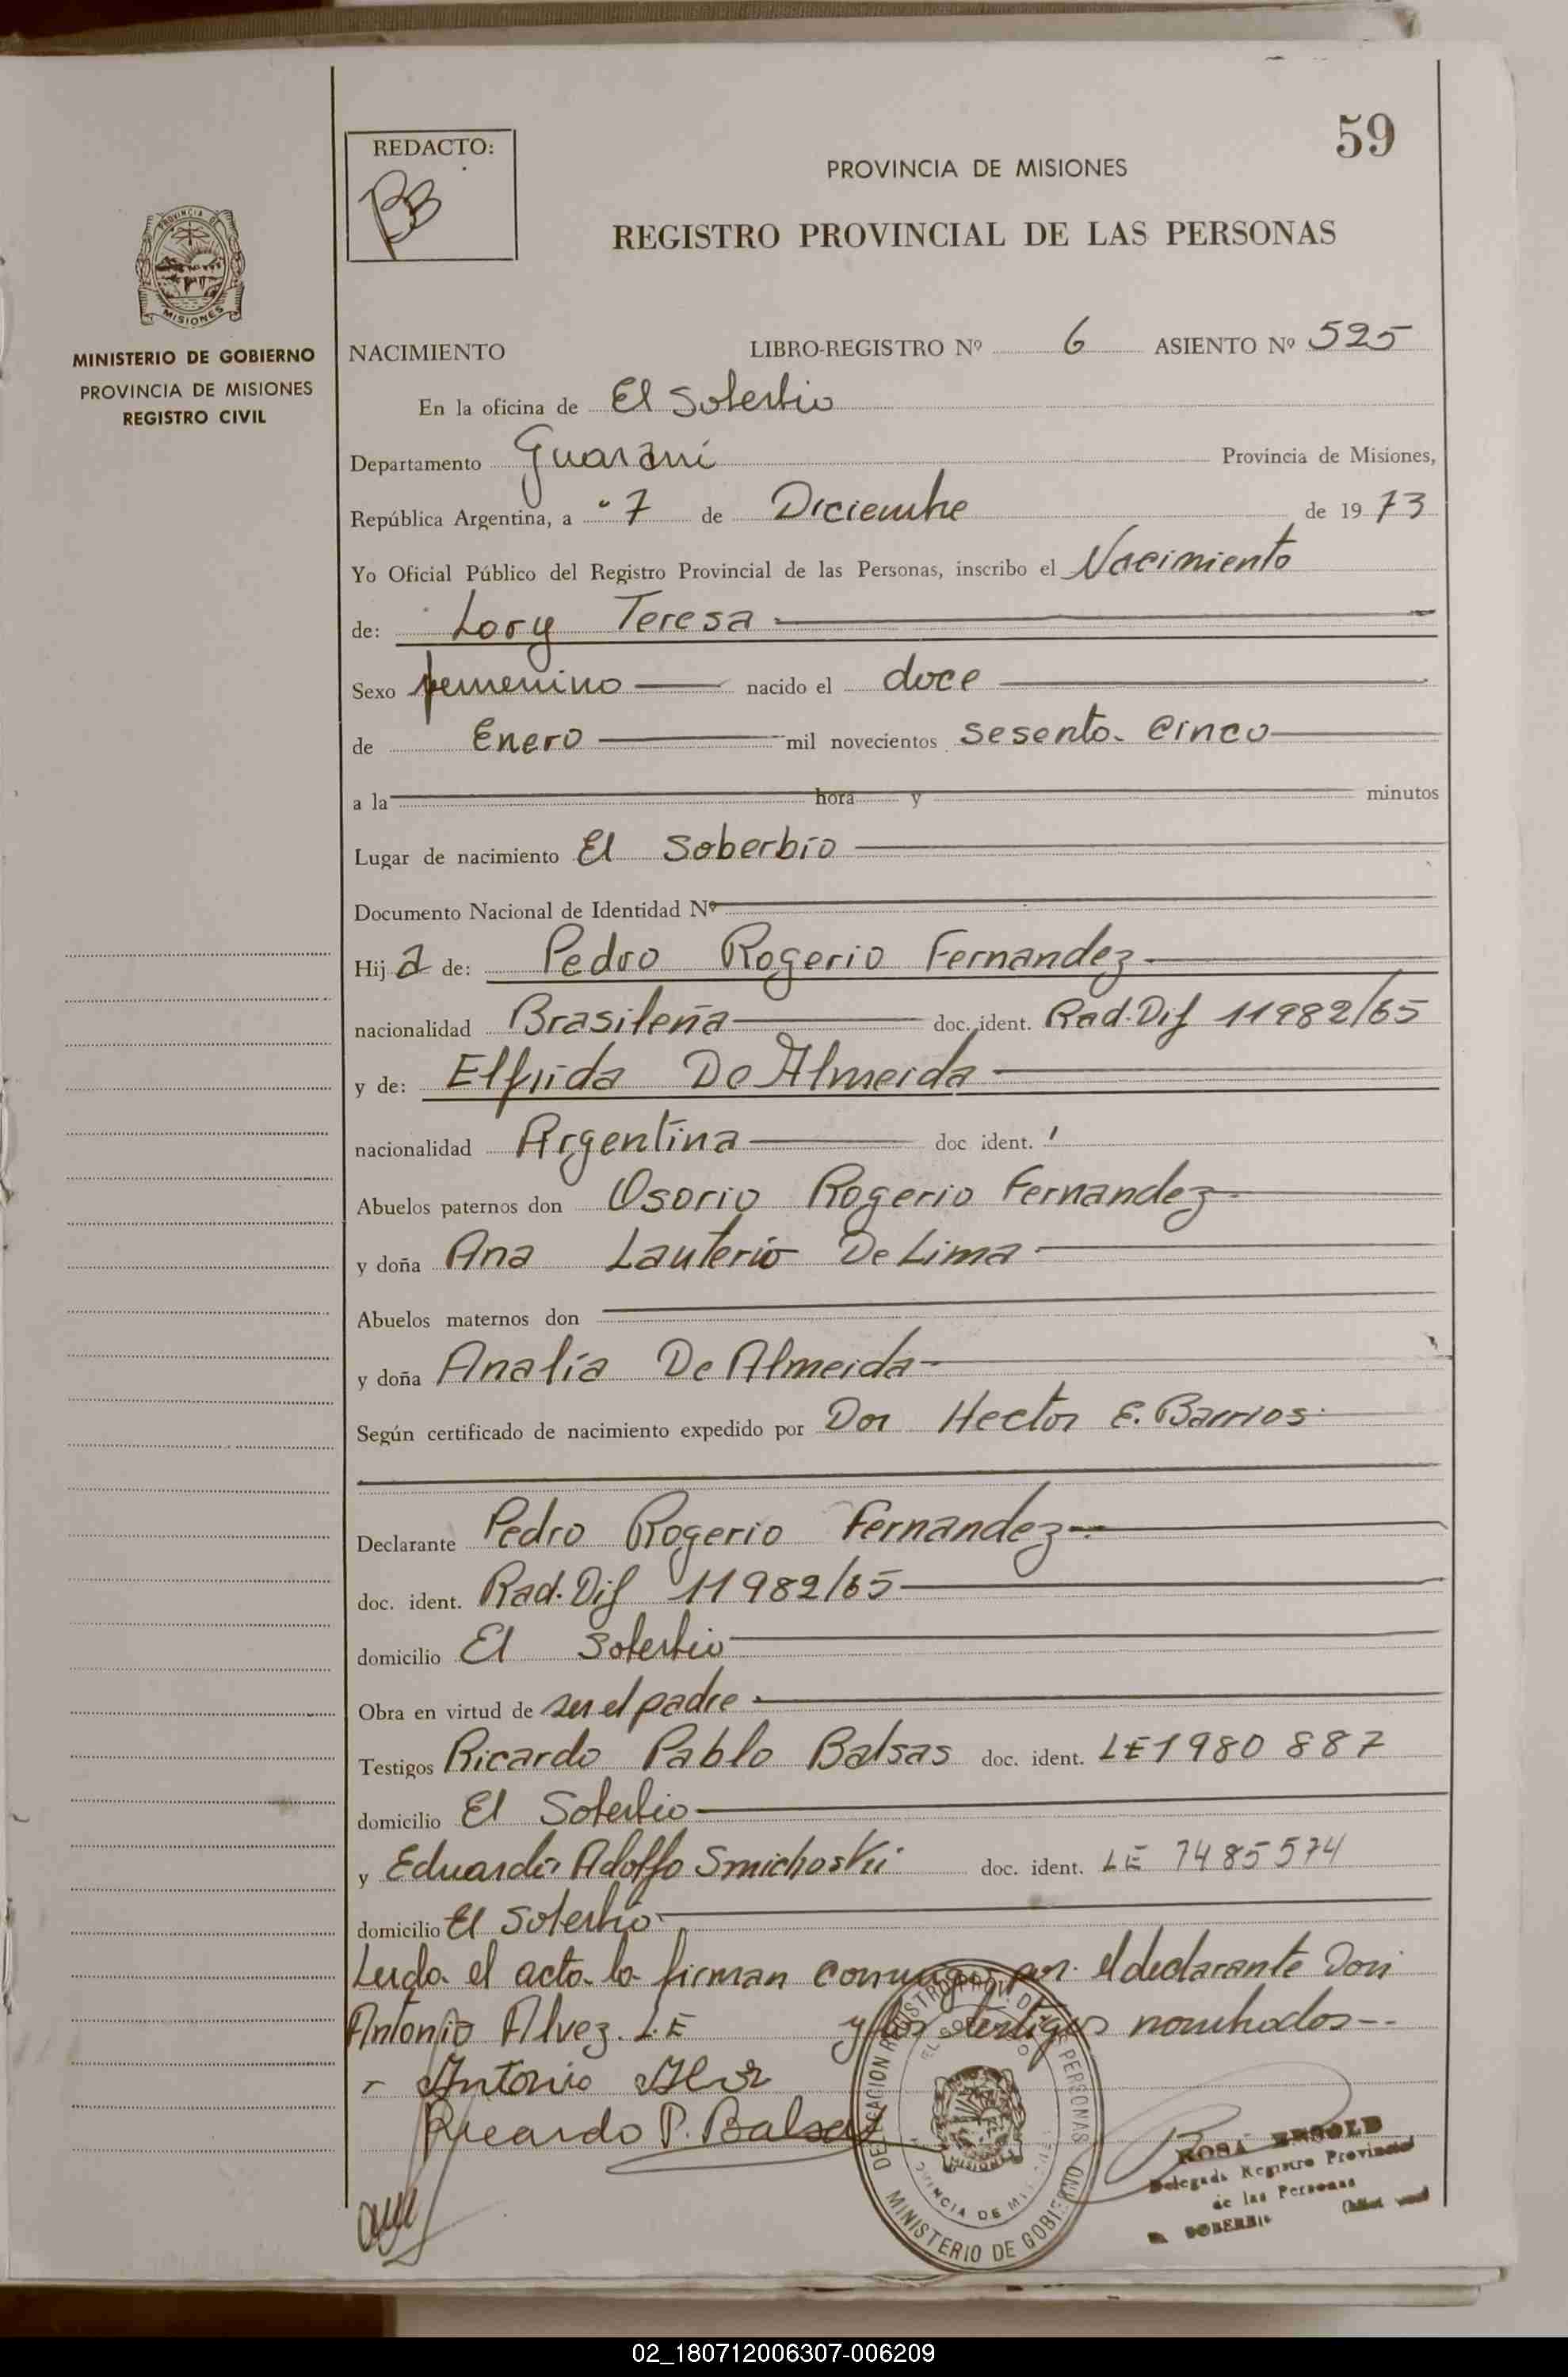 59
REDACTO:
PROVINCIA DE MISIONES
REGISTRO PROVINCIAL DE LAS PERSONAS
MISIONES
MINISTERIO DE GOBIERNO
PROVINCIA DE MISIONES
REGISTRO CIVIL
NACIMIENTO LIBRO-REGISTRO Nº 6 ASIENTO Nº 525
En la oficina de El Soberbio
Departamento Guaraní Provincia de Misiones,
República Argentina, a 7 de Diciembre de 19 73
Yo Oficial Público del Registro Provincial de las Personas, inscribo el Nacimiento
de: Lory Teresa
Sexo femenino nacido el doce
de Enero mil novecientos sesenta cinco
a la hora y minutos
Lugar de nacimiento El Soberbio
Documento Nacional de Identidad Nº
Hij a de: Pedro Rogerio Fernandez
nacionalidad Brasileña doc. ident. Rad. Dif 11982/65
y de: Elfrida De Almeida
nacionalidad Argentina doc ident.
Abuelos paternos don Osorio Rogerio Fernandez
y doña Ana Lauterio De Lima
Abuelos maternos don
y doña Analía De Almeida
Según certificado de nacimiento expedido por Don Hector E. Barrios
Declarante Pedro Rogerio Fernandez
doc. ident. Rad. Dif 11982/65
domicilio El Soberbio
Obra en virtud de ser el padre
Testigos Ricardo Pablo Balsas doc. ident. LE 1980 887
domicilio El Soberbio
y Eduardo Adolfo Smichoski doc. ident. LE 7485574
domicilio El Soberbio
Leida el acta la firman conmigo por el declarante Don
Antonio Alvez. L.E y los testigos nombrados--
Antonio
Ricardo P. Balsas
DELEGACION REGISTRO PROV. DE LAS PERSONAS
EL SOBERBIO
MISIONES
PROVINCIA DE MISIONES
MINISTERIO DE GOBIERNO
ROSA
Delegada Registro Provincial
de las Personas
SOBERBIO
02_180712006307-006209